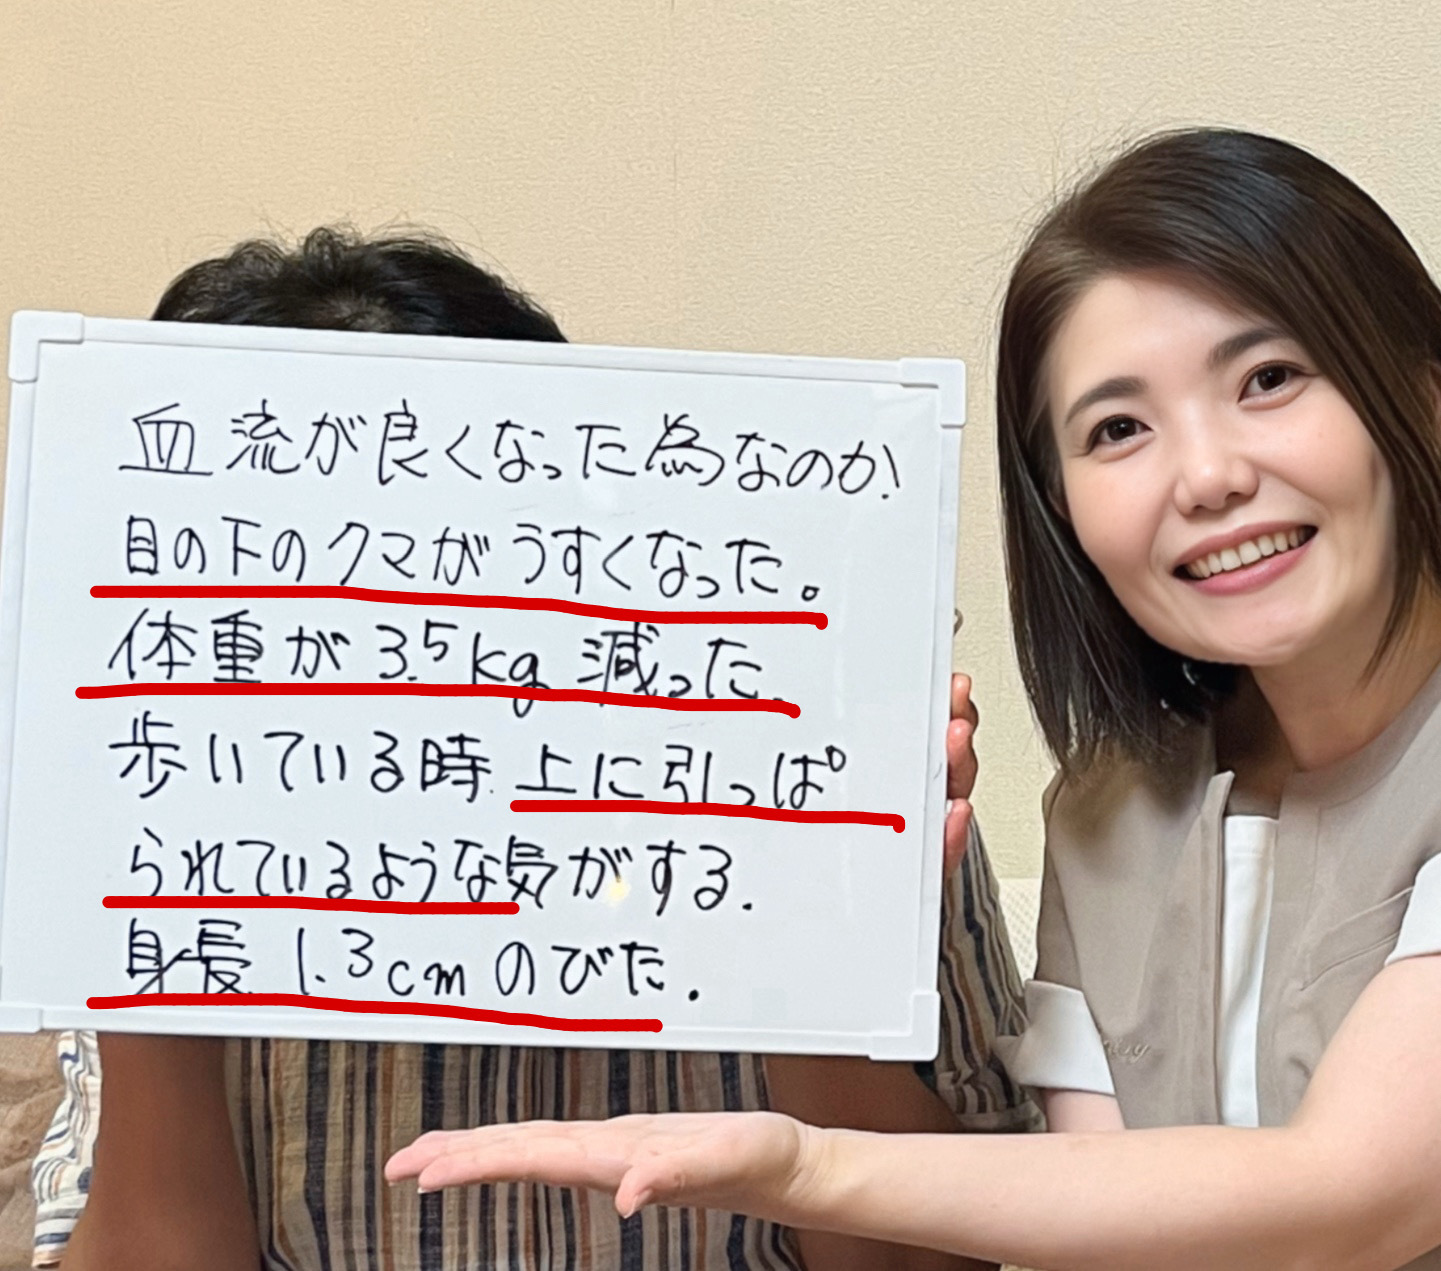 血流が良くなった為なのか!
目の下のクマがうすくなった。
体重が3.5kg減った.
歩いている時.上に引っぱ
られているような気がする.
身長1.3cmのびた.